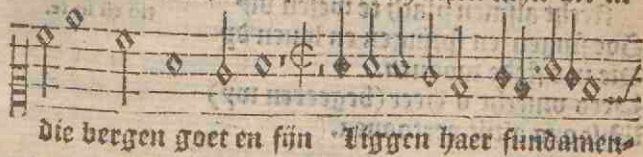 die bergen goet en fijn Liggen haer fundamen-